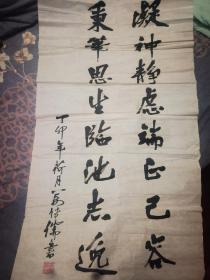 凝神静虑端正己容
秉笔思生临池志逸
丁卯年荷月
儒书